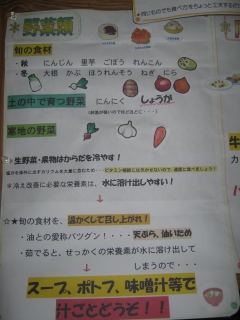 野菜類
旬の食材
・秋 にんじん 里芋 ごぼう れんこん
・冬 大根 かぶ ほうれんそう ねぎ にら
土の中で育つ野菜 にんにく しょうが
寒地の野菜
・生野菜・果物はからだを冷やす！
※冷え改善に必要な栄養素は、水に溶け出しやすい！
☆★旬の食材を、温かくして召し上がれ！
・油との愛称バツグン！・・・天ぷら、油いため
・茹でると、せっかくの栄養素が水に溶けだして
しまうので・・・
スープ、ポトフ、味噌汁等で
汁ごとどうぞ！！